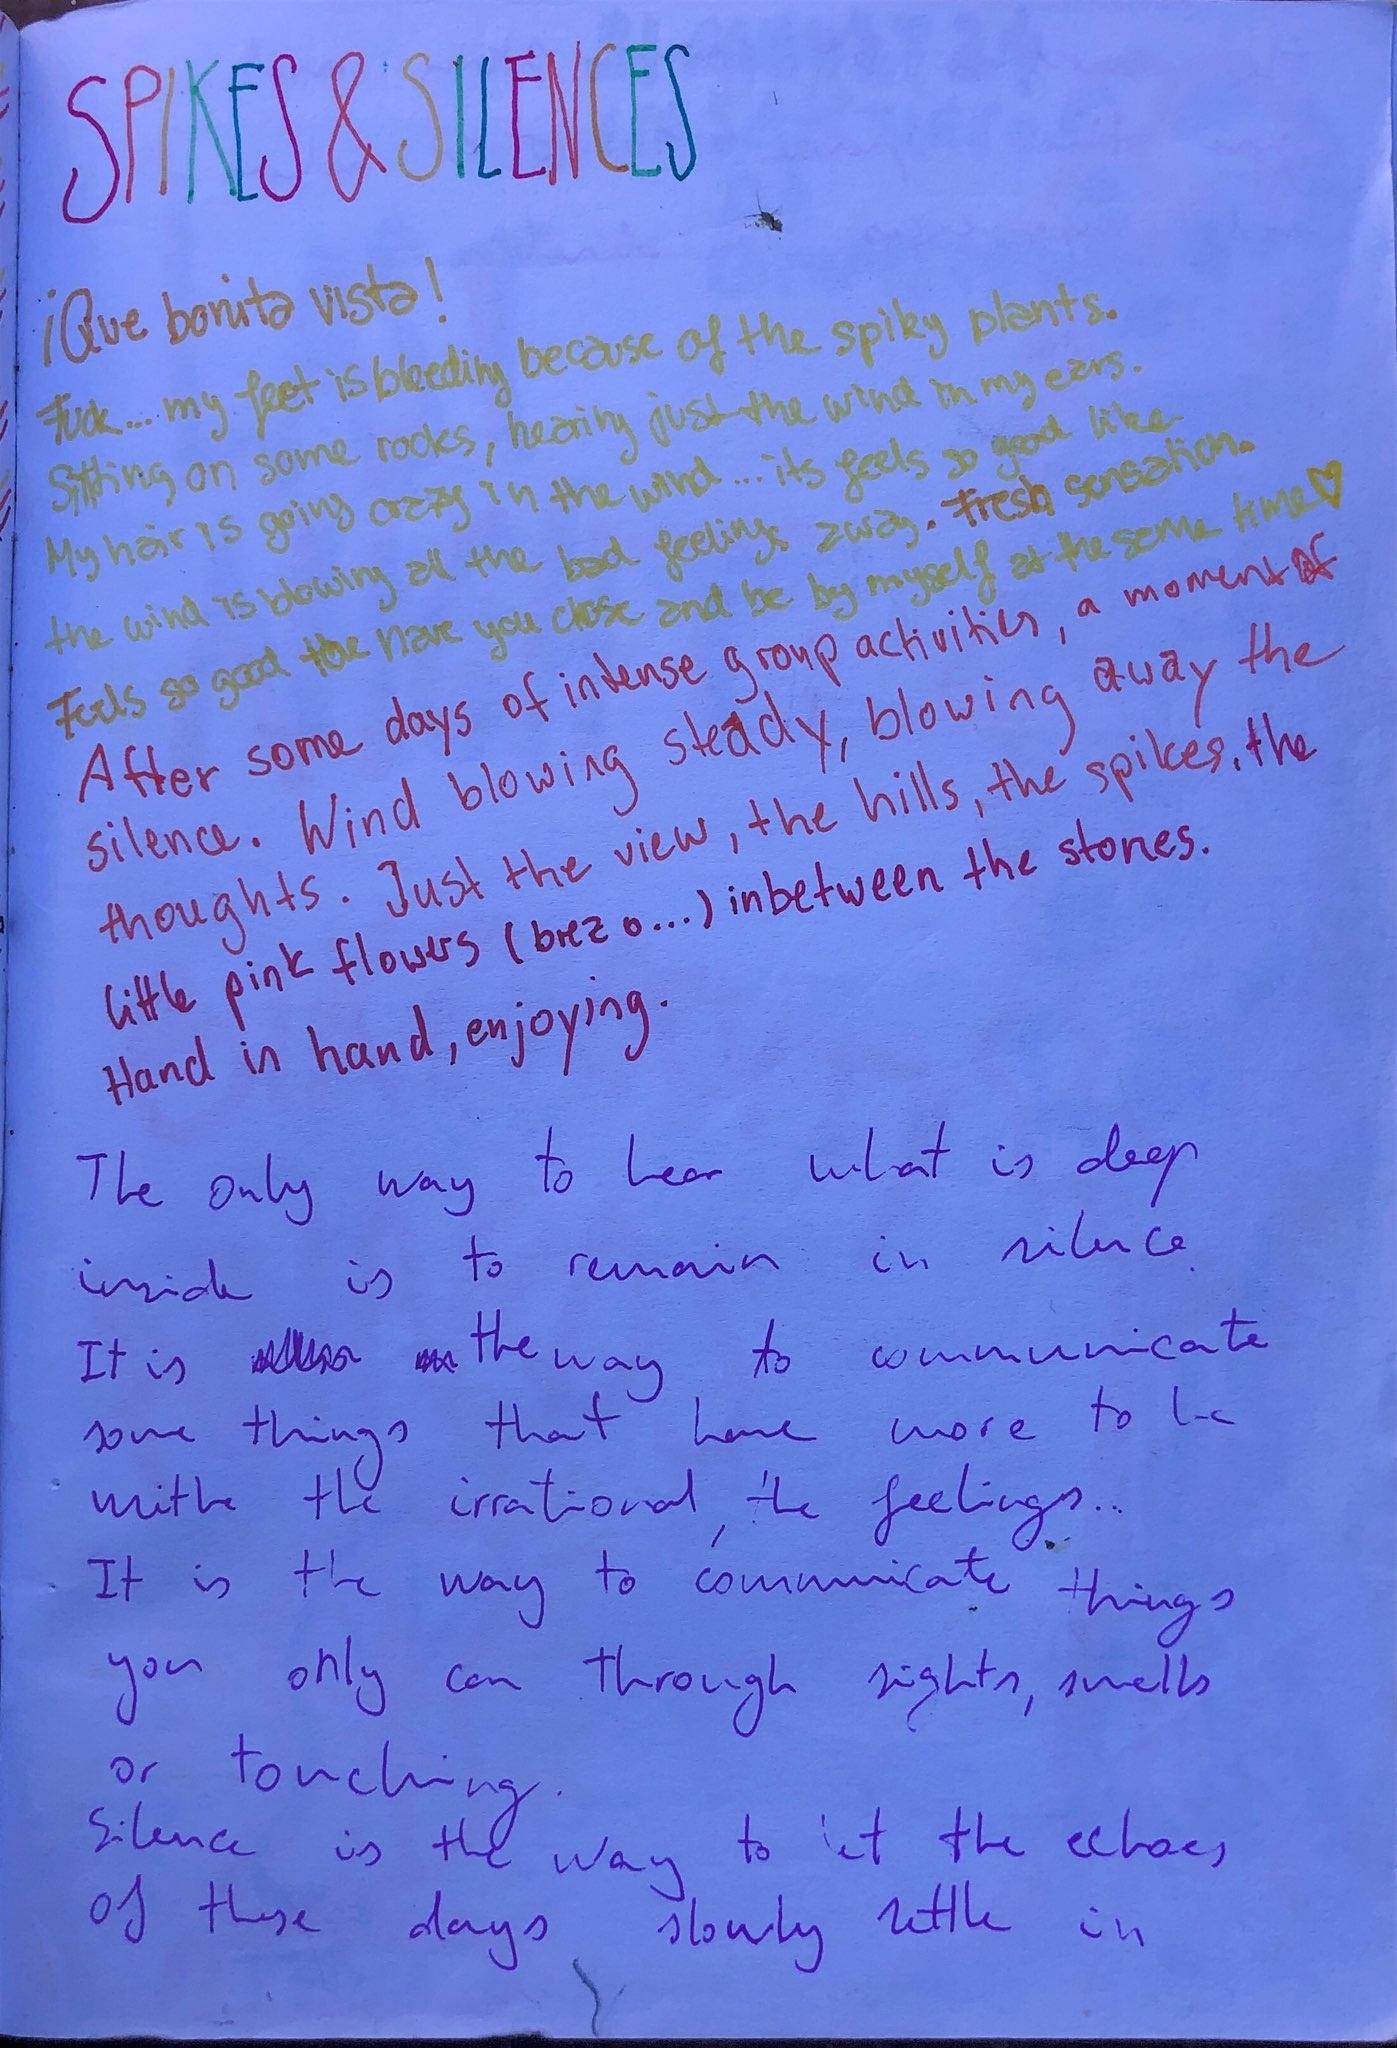 SPIKES & SILENCES
¡Que bonita vista!
Fuck... my feet is bleeding because of the spiky plants.
Sitting on some rocks, hearing just the wind in my ears.
My hair is going crazy in the wind... its feels so good like
the wind is blowing all the bad feelings away. Fresh sensation.
Feels so good to have you close and be by myself at the same time ♡
After some days of intense group activities, a moment of
silence. Wind blowing steady, blowing away the
thoughts. Just the view, the hills, the spikes, the
little pink flowers (brezo...) inbetween the stones.
Hand in hand, enjoying.
The only way to hear what is deep
inside is to remain in silence.
It is the way to communicate
some things that have more to be
withe the irrational, the feelings..
It is the way to communicate things
you only can through sights, smells
or touching.
Silence is the way to let the echoes
of these days slowly settle in